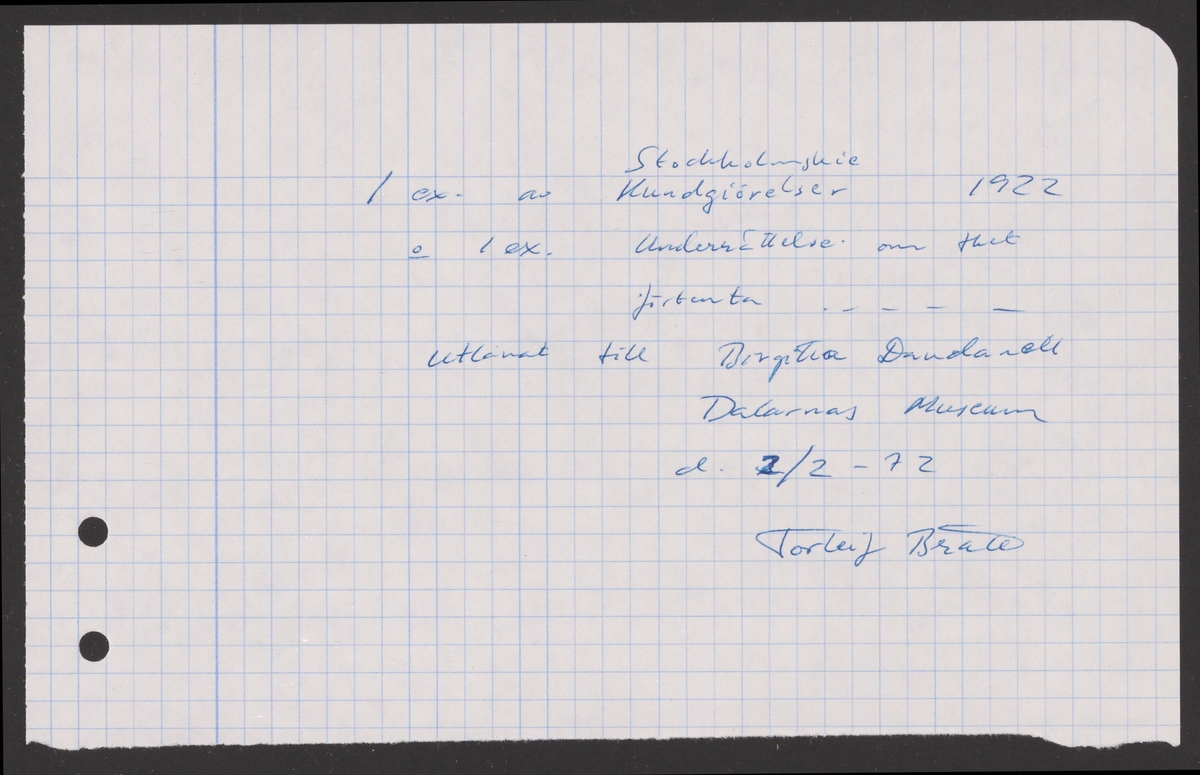 Stockholmskie
1 ex. av Kundgiörelser 1922
o 1 ex. Underrättelse om thet
förtenta - - - - -
Utlånat till Birgitta Dandanell
Dalarnas Museum
d. 2/2 - 72
Torleif Bråte